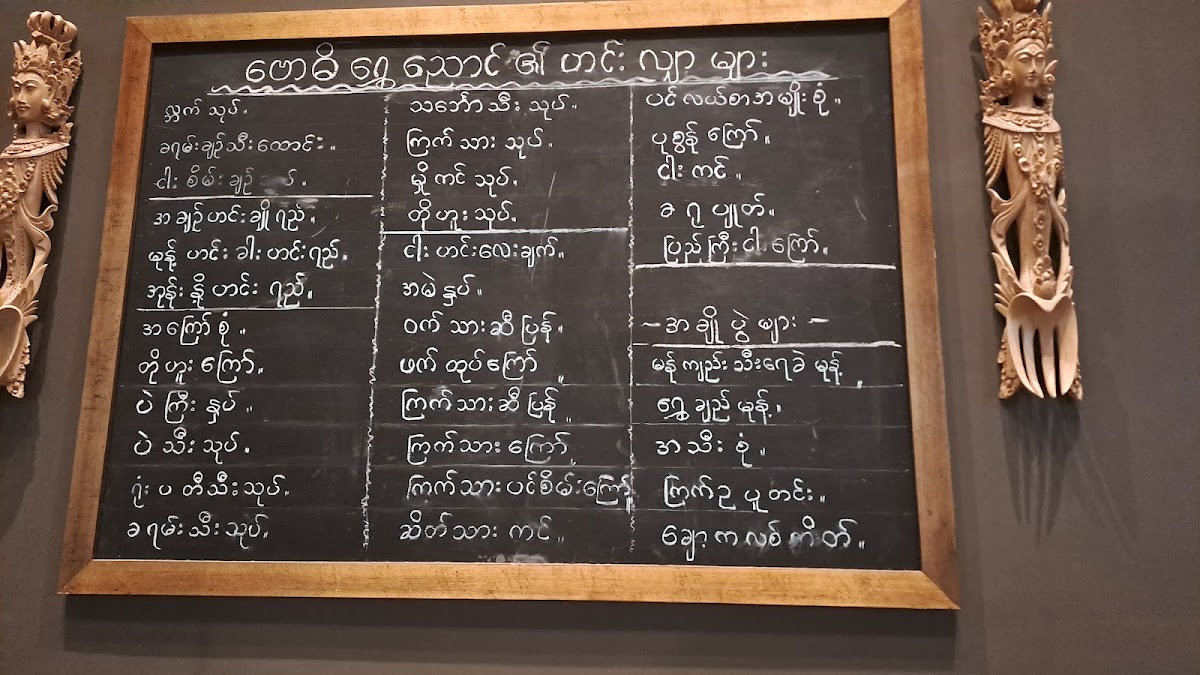 ဗောဓိ ရွှေ ညောင် ၏ ဟင်း လျာ များ
လ္ဘက် သုပ်.
ခရမ်းချဉ်သီးထောင်း။
ငါး စိမ်း ချဉ်
အ ချဉ် ဟင်းချို ရည်.
မုန့် ဟင်း ခါး ဟင်းရည်.
အုန်း နို့ ဟင်း ရည်။
အ ကြော် စုံ ။
တို ဟူး ကြော်.
ပဲ ကြီး နှပ် ။
ပဲ သီး သုပ်.
ရုံး ပ တီသီးသုပ်.
ခ ရမ်း သီး သုပ်.
သင်္ဘောသီး သုပ်.
ကြက် သား သုပ်.
မှို ကင် သုပ်.
တို ဟူး သုပ်.
ငါး ဟင်းလေးချက်.
အမဲ နှပ် ။
ဝက် သား ဆီ ပြန်.
ဖက် ထုပ် ကြော် ။
ကြက်သား ဆီ ပြန် ။
ကြက်သား ကြော်.
ကြက်သား ပင်စိမ်းကြော်.
ဆိတ်သား ကင် ။
ပင် လယ်စာအမျိုးစုံ ။
ပုစွန် ကြော် ။
ငါး ကင် ။
ခ ရု ပျုတ်.
ပြည်ကြီးငါး ကြော်.
– အ ချို ပွဲ များ –
မန် ကျည်း သီးရေခဲ မုန့် ။
ရွှေ ချည် မုန့်.
အ သီး စုံ ။
ကြက်ဥ ပူ တင်း ။
ချော့ က လစ် ကိတ် ။